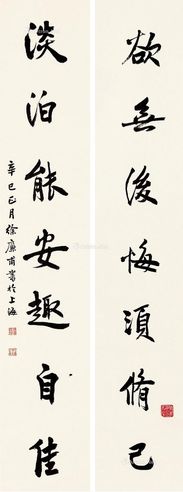 欲無後悔須脩己
淡泊能安趣自佳
辛巳正月徐廉甫書於上海